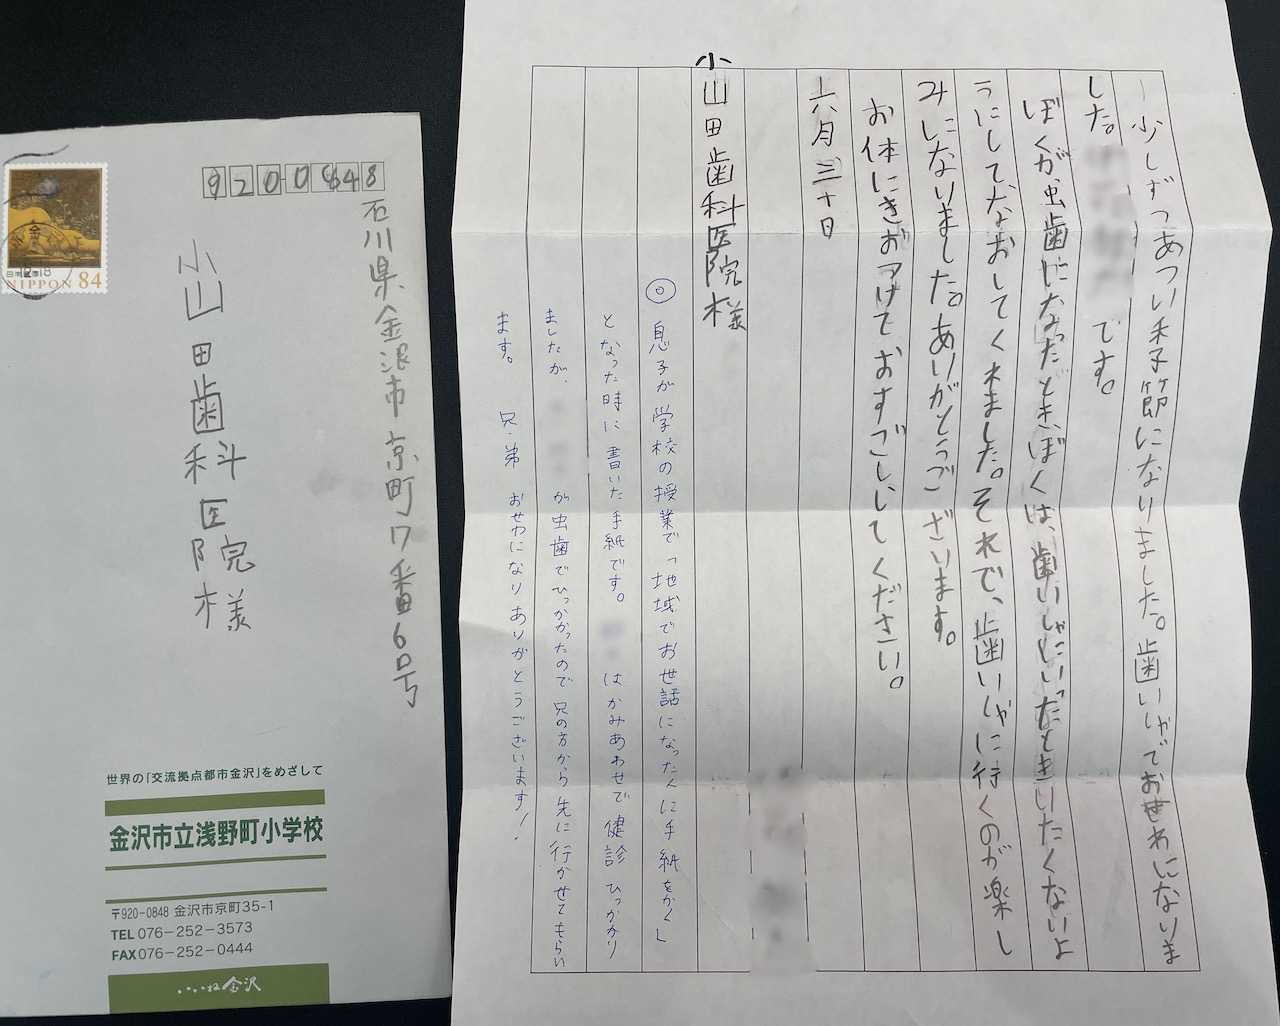 920-0848
石川県金沢市京町17番6号
小山田歯科医院様
NIPPON 84
世界の「交流拠点都市金沢」をめざして
金沢市立浅野町小学校
〒920-0848 金沢市京町35-1
TEL 076-252-3573
FAX 076-252-0444
いいね金沢
少しずつあつい季節になりました。歯いしゃでおせわになりま
した。
です。
ぼくが虫歯になったとき、ぼくは、歯いしゃにいったときいたくないよ
うにしてなおしてくれました。それで、歯いしゃに行くのが楽し
みになりました。ありがとうございます。
お体にきおつけておすごしいしてください。
六月三十日
小山田歯科医院様
◎息子が学校の授業で「地域でお世話になった人に手紙をかく」
となった時に書いた手紙です。
はかみあわせで健診ひっかかり
ましたが、
が虫歯でひっかかったので兄の方から先に行かせてもらい
ます。 兄・弟 おせわになりありがとうございます!